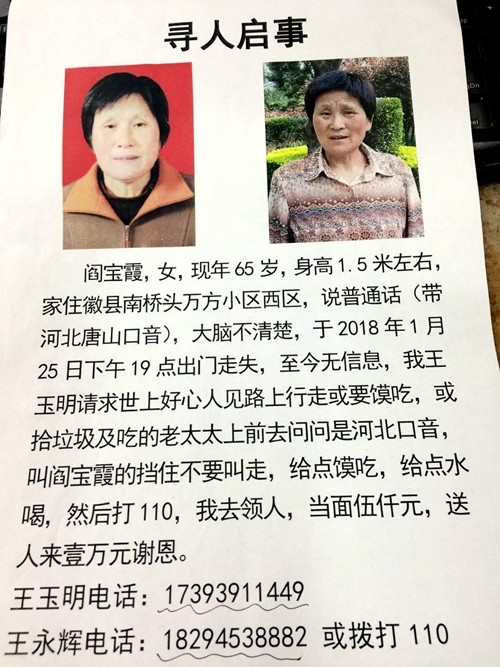 寻人启事
阎宝霞，女，现年 65 岁，身高 1.5 米左右，
家住徽县南桥头万方小区西区，说普通话（带
河北唐山口音），大脑不清楚，于 2018 年 1 月
25 日下午 19 点出门走失，至今无信息，我王
玉明请求世上好心人见路上行走或要馍吃，或
拾垃圾及吃的老太太上前去问问是河北口音，
叫阎宝霞的挡住不要叫走，给点馍吃，给点水
喝，然后打 110，我去领人，当面伍仟元，送
人来壹万元谢恩。
王玉明电话：17393911449
王永辉电话：18294538882 或拨打 110